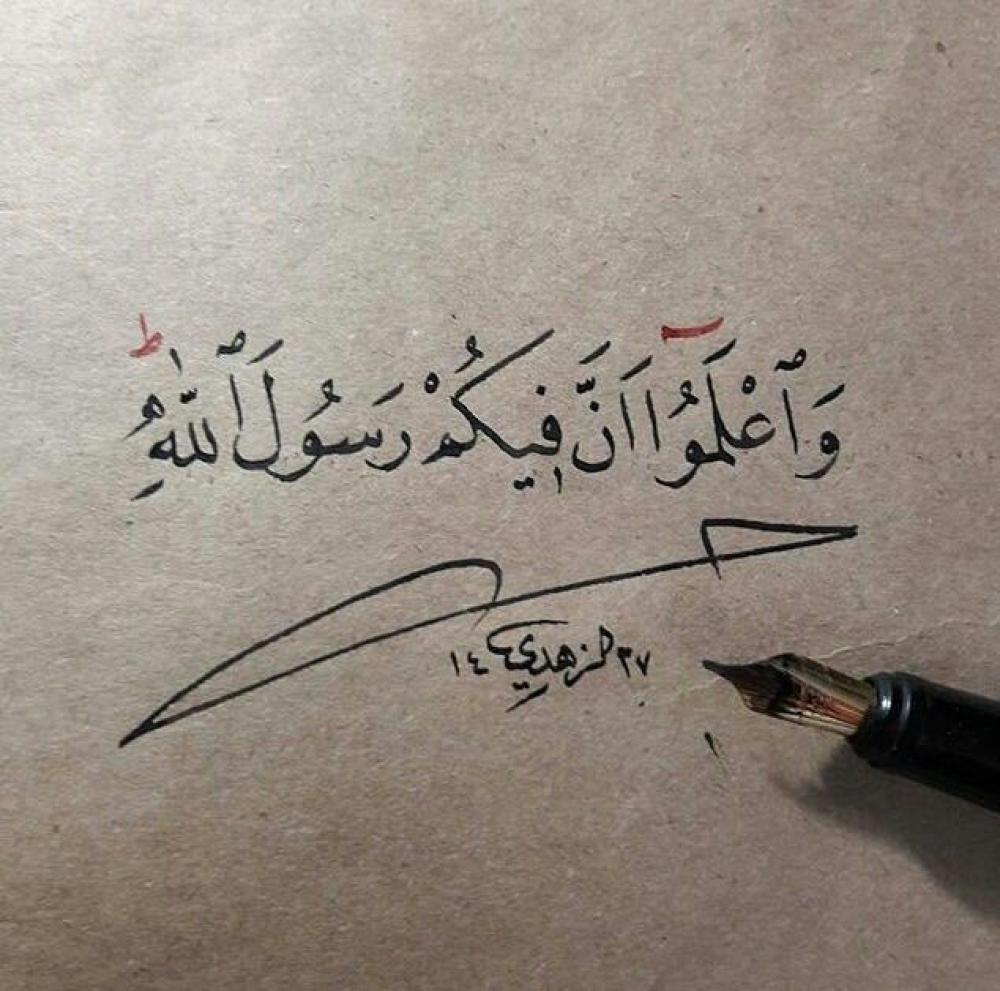 وَٱعْلَمُوٓا اَنَّ فٖيكُمْ رَسُولَ ٱللّٰهِؕ
الزهدي
١٤ ٣٧